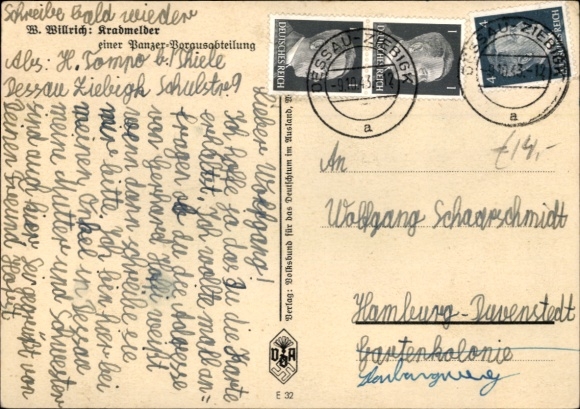 Schreibe Bald wieder
W. Willrich: Kradmelder
einer Panzer-Vorausabteilung
Abs: H. Tompo b. Thiele
Dessau Ziebigk Schulstr 9
Lieber Wolfgang!
Ich hoffe ja das du die Karte
erhälst, Ich wollte mal an
fragen ob du die Adresse
von Gerhard weißt
wenn dann schreibe sie
mir bitte. Ich bin hier bei
meinen Onkel in Dessau
meine Mutter und Schwester
sind auch hier Sei gegrüßt von
deinen Freund
Verlag: Volksbund für das Deutschtum im Ausland,
DEUTSCHES REICH
1
DEUTSCHES REICH
1
4
4
DESSAU-ZIEBIGK
-9.10.43.-12
a
DESSAU-ZIEBIGK
a
€14,-
An
Wolfgang Schaarschmidt
Hamburg-Duvenstedt
Gartenkolonie
VDA
E 32